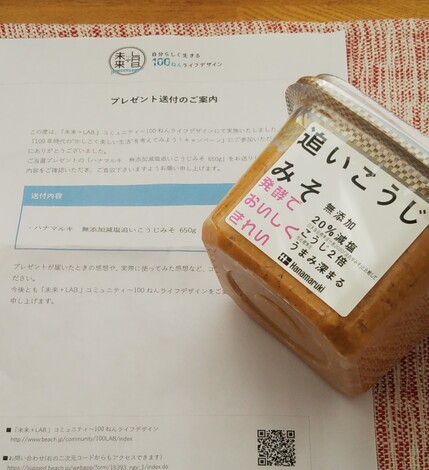 自分らしく生きる
100ねんライフデザイン
プレゼント送付のご案内
この度は、「未来+LAB.」コミュニティ～100ねんライフデザインにて実施いたしました
にありがとうございました。
ご当選プレゼントの「ハナマルキ 無添加減塩追いこうじみそ 650g」をお送り
内容をご確認いただき、ご査収下さいますようお願い申し上げます。
送付内容
・ハナマルキ 無添加減塩追いこうじみそ 650g
プレゼントが届いたときの感想や、実際に使ってみた感想など、コ
ださい。
今後とも「未来+LAB.」コミュニティ～100ねんライフデザインをご
申し上げます。
■「未来+LAB.」コミュニティ～100ねんライフデザイン
http://www.beach.jp/community/100LAB/index
■お問い合わせ(右の二次元コードからもアクセスできます)
追いこうじ
みそ
発酵で
おいしく
きれい
無添加
20%減塩
こうじ2倍
うまみ深まる
Hanamaruki